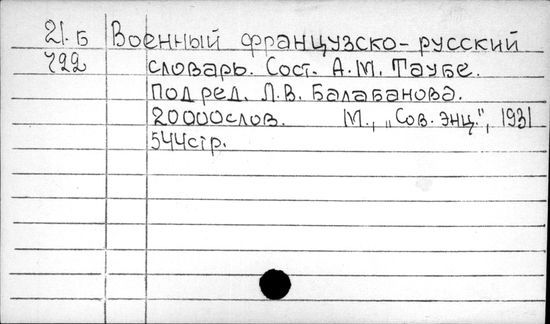 21.Б Военный французско-русский
722 словарь. Сост. А.М. Таубе.
Под ред. Л.В. Балабанова.
20000слов. М., „Сов. энц.", 1931
544стр.